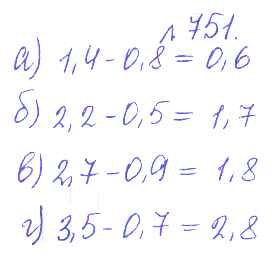 л 751.
а) 1,4 - 0,8 = 0,6
б) 2,2 - 0,5 = 1,7
в) 2,7 - 0,9 = 1,8
г) 3,5 - 0,7 = 2,8